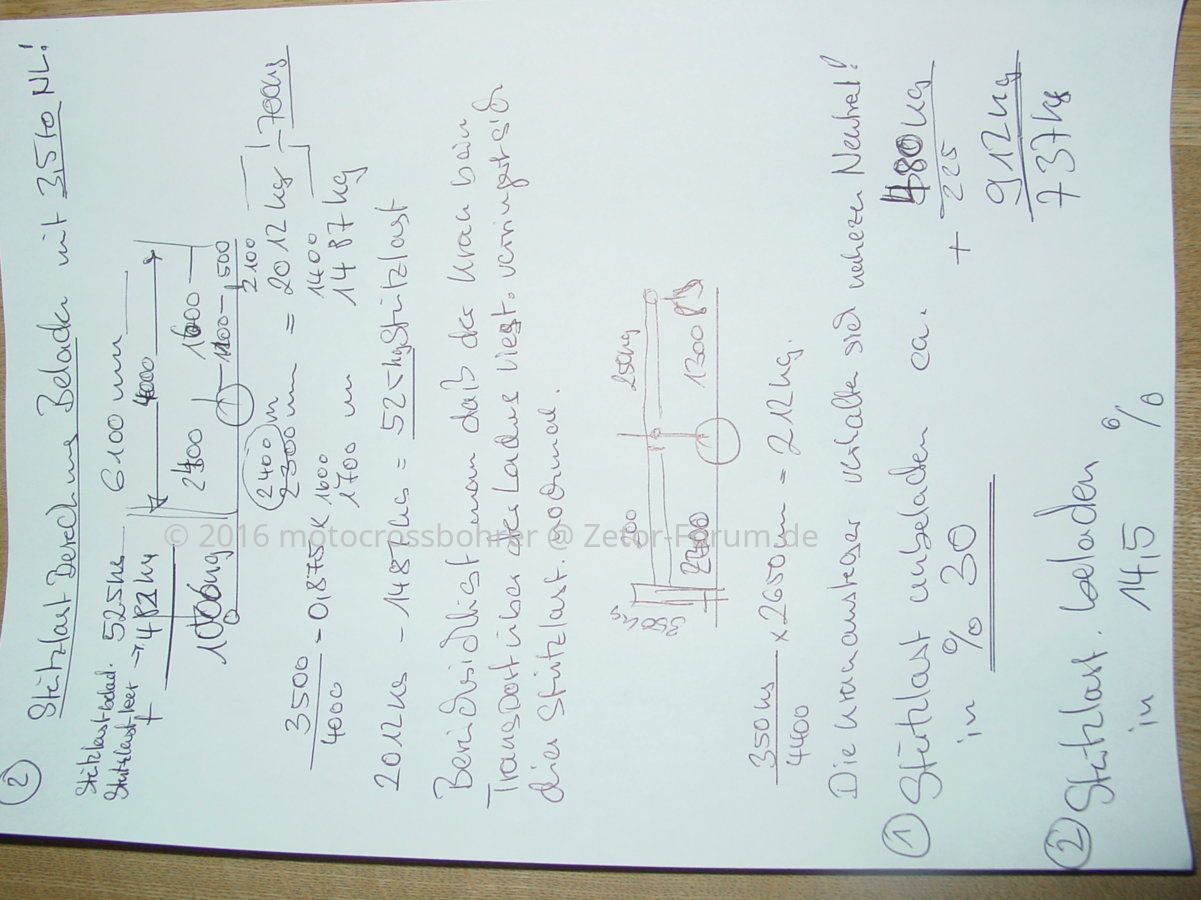 ②
Stützlast Berechnung Beladen mit 3,5 to NL!
Stützlast belad. 525 kg
Stützlast leer → 482 kg
+
1006 kg
6100 mm
4000
2400 1600
1100 500
2100
3500
4000
= 0,875 x
2400 m
2300 mm = 2012 kg
700 kg
1600
1700 m
1400
1487 kg
2012 kg - 1487 kg = 525 kg Stützlast
Berücksichtigt man daß der Kran beim
Transport über der Ladung liegt. verringert sich
die Stützlast. nochmal.
350 kg
250 kg
1300
350 kg
4400
x 2650 mm = 212 kg.
Die Kranausleger verhalten sich nahezu Neutral!
① Stützlast unbeladen ca.
in % 30
480 kg
+ 225
912 kg
737 kg
② Stützlast. beladen
in 14,5 %
© 2016 motocrossbohrer @ Zetor-Forum.de